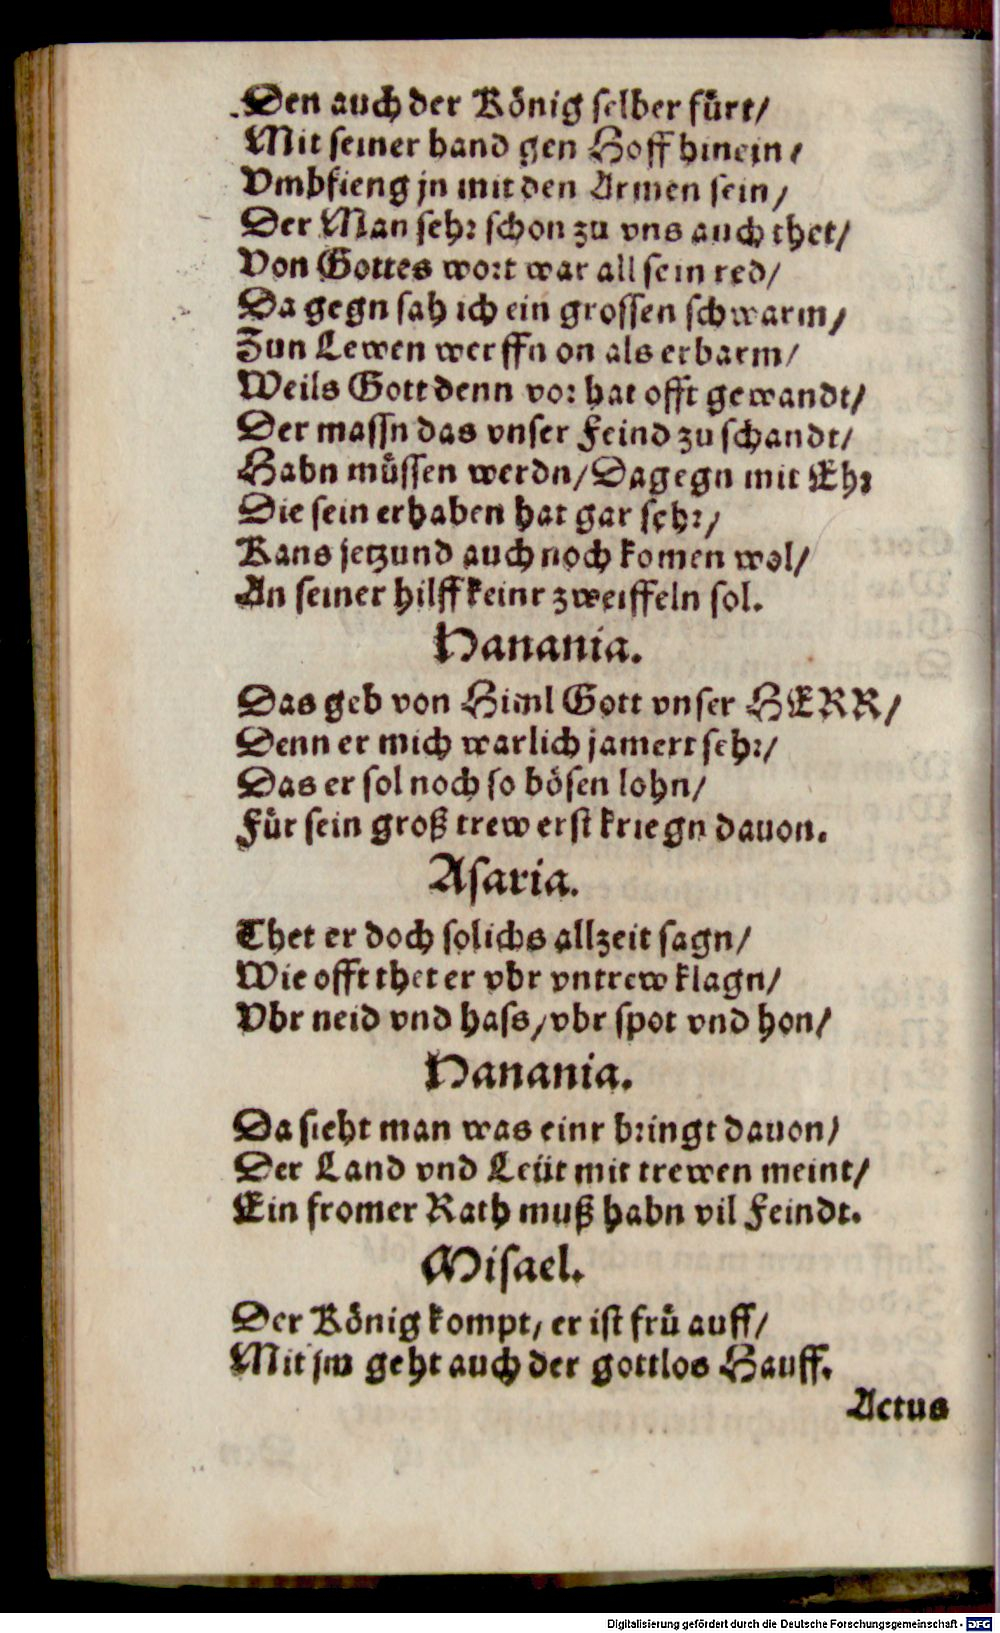 Den auch der König selber fürt/
Mit seiner hand gen Hoff hinein/
Vmbfieng jn mit den Armen sein/
Der Man sehr schon zu vns auch thet/
Von Gottes wort war all sein red/
Da gegn sah ich ein grossen schwarm/
Zun Lewen werffn on als erbarm/
Weils Gott denn vor hat offt gewandt/
Der massn das vnser Feind zu schandt/
Habn müssen werdn/Dagegn mit Ehr
Die sein erhaben hat gar sehr/
Kans jetzund auch noch komen wol/
An seiner hilff keinr zweiffeln sol.
Hanania.
Das geb von Himl Gott vnser HERR/
Denn er mich warlich jamert sehr/
Das er sol noch so bösen lohn/
Für sein groß trew erst kriegn dauon.
Asaria.
Thet er doch solichs allzeit sagn/
Wie offt thet er vbr vntrew klagn/
Vbr neid vnd hass/vbr spot vnd hon/
Hanania.
Da sieht man was einr bringt dauon/
Der Land vnd Leüt mit trewen meint/
Ein fromer Rath muß habn vil Feindt.
Misael.
Der König kompt/ er ist frü auff/
Mit jm geht auch der gottlos Hauff.
Actus
Digitalisierung gefördert durch die Deutsche Forschungsgemeinschaft - DFG